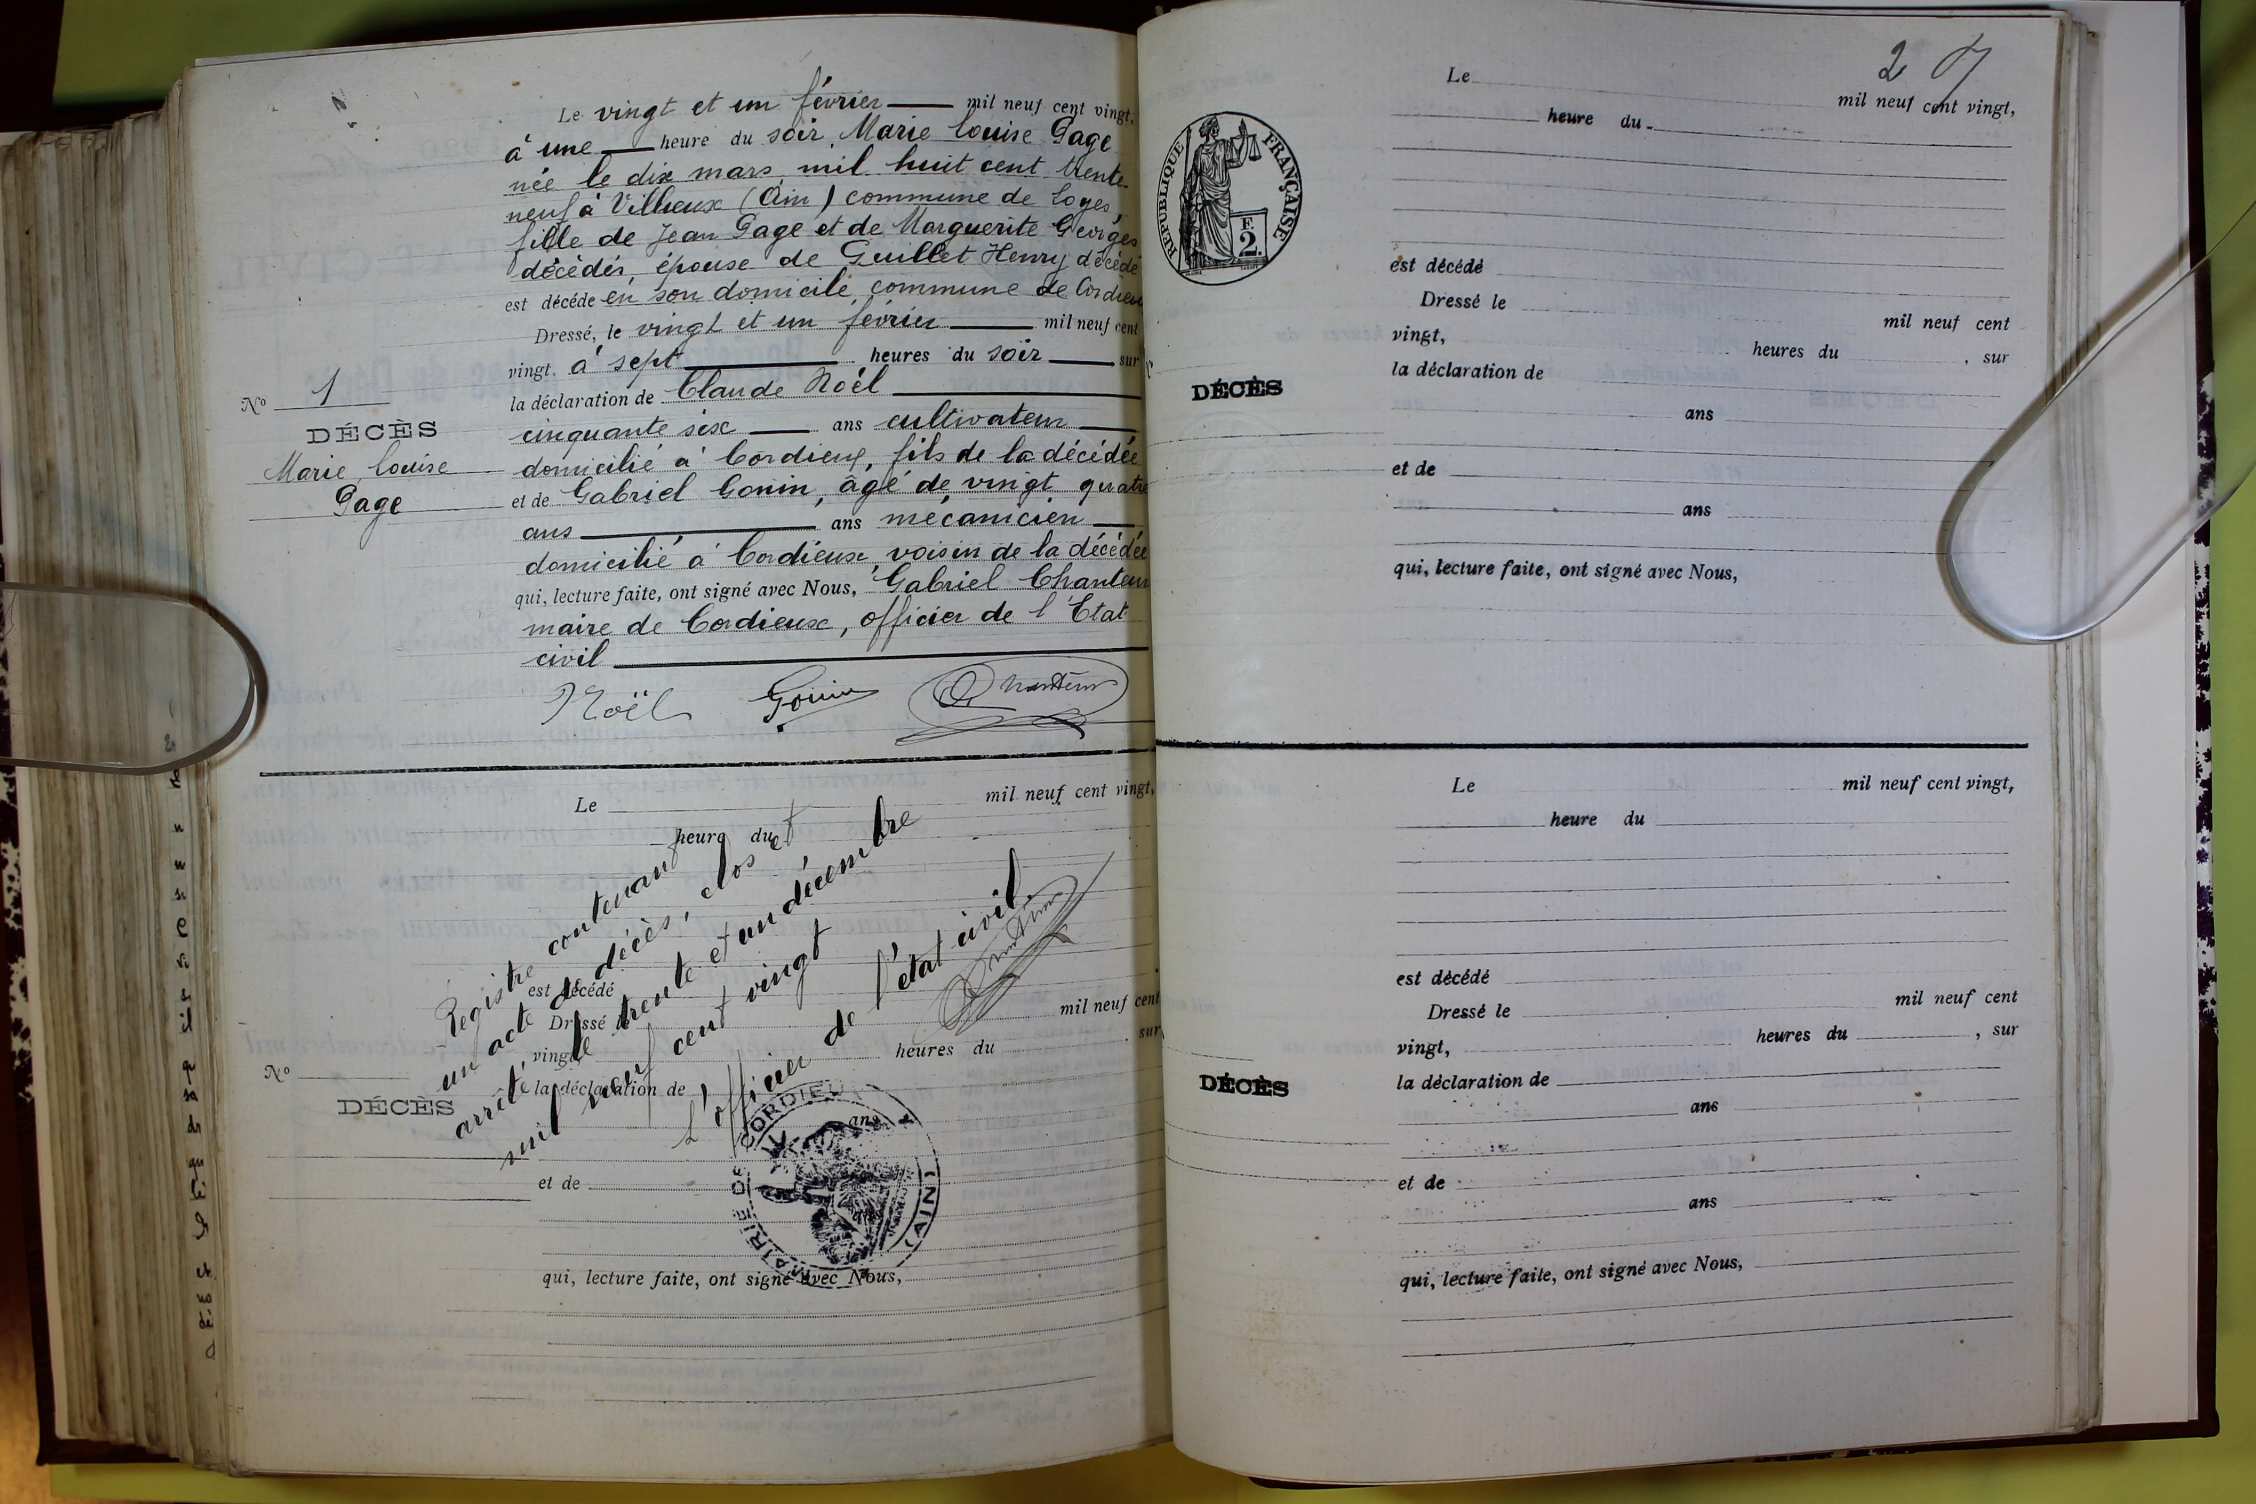 Le vingt et un février mil neuf cent vingt,
à une heure du soir, Marie Louise Page
née le dix mars mil huit cent trente-
neuf à Villieux (Ain) commune de Loyes,
fille de Jean Page et de Marguerite Georges
décédés, épouse de Guillet Henry décédé
est décédé en son domicile, commune de Cordieux
Dressé, le vingt et un février mil neuf cent
vingt, à sept heures du soir sur
la déclaration de Claude Noël
cinquante six ans cultivateur
domicilié à Cordieux, fils de la décédée
et de Gabriel Gonin, âgé de vingt quatre
ans ans mécanicien
domicilié à Cordieux, voisin de la décédée
qui, lecture faite, ont signé avec Nous, Gabriel Chanteur
maire de Cordieux, officier de l'Etat
civil
Noël Gonin Chanteur
No 1
DÉCÈS
Marie Louise
Page
Le mil neuf cent vingt,
heure du
est décédé
Dressé le mil neuf cent
vingt, heures du sur
la déclaration de
ans
et de
qui, lecture faite, ont signé avec Nous,
No
DÉCÈS
Registre contenant
un acte de décès, clos et
arrêté, le trente et un décembre
mil neuf cent vingt
L'officier de l'état civil
Chanteur
MAIRIE DE CORDIEUX
(AIN)
2
Le mil neuf cent vingt,
heure du
RÉPUBLIQUE FRANÇAISE
F.
2.
est décédé
Dressé le mil neuf cent
vingt, heures du , sur
la déclaration de
DÉCÈS
ans
et de
ans
qui, lecture faite, ont signé avec Nous,
Le mil neuf cent vingt,
heure du
est décédé
Dressé le mil neuf cent
vingt, heures du , sur
la déclaration de
DÉCÈS
ans
et de
ans
qui, lecture faite, ont signé avec Nous,